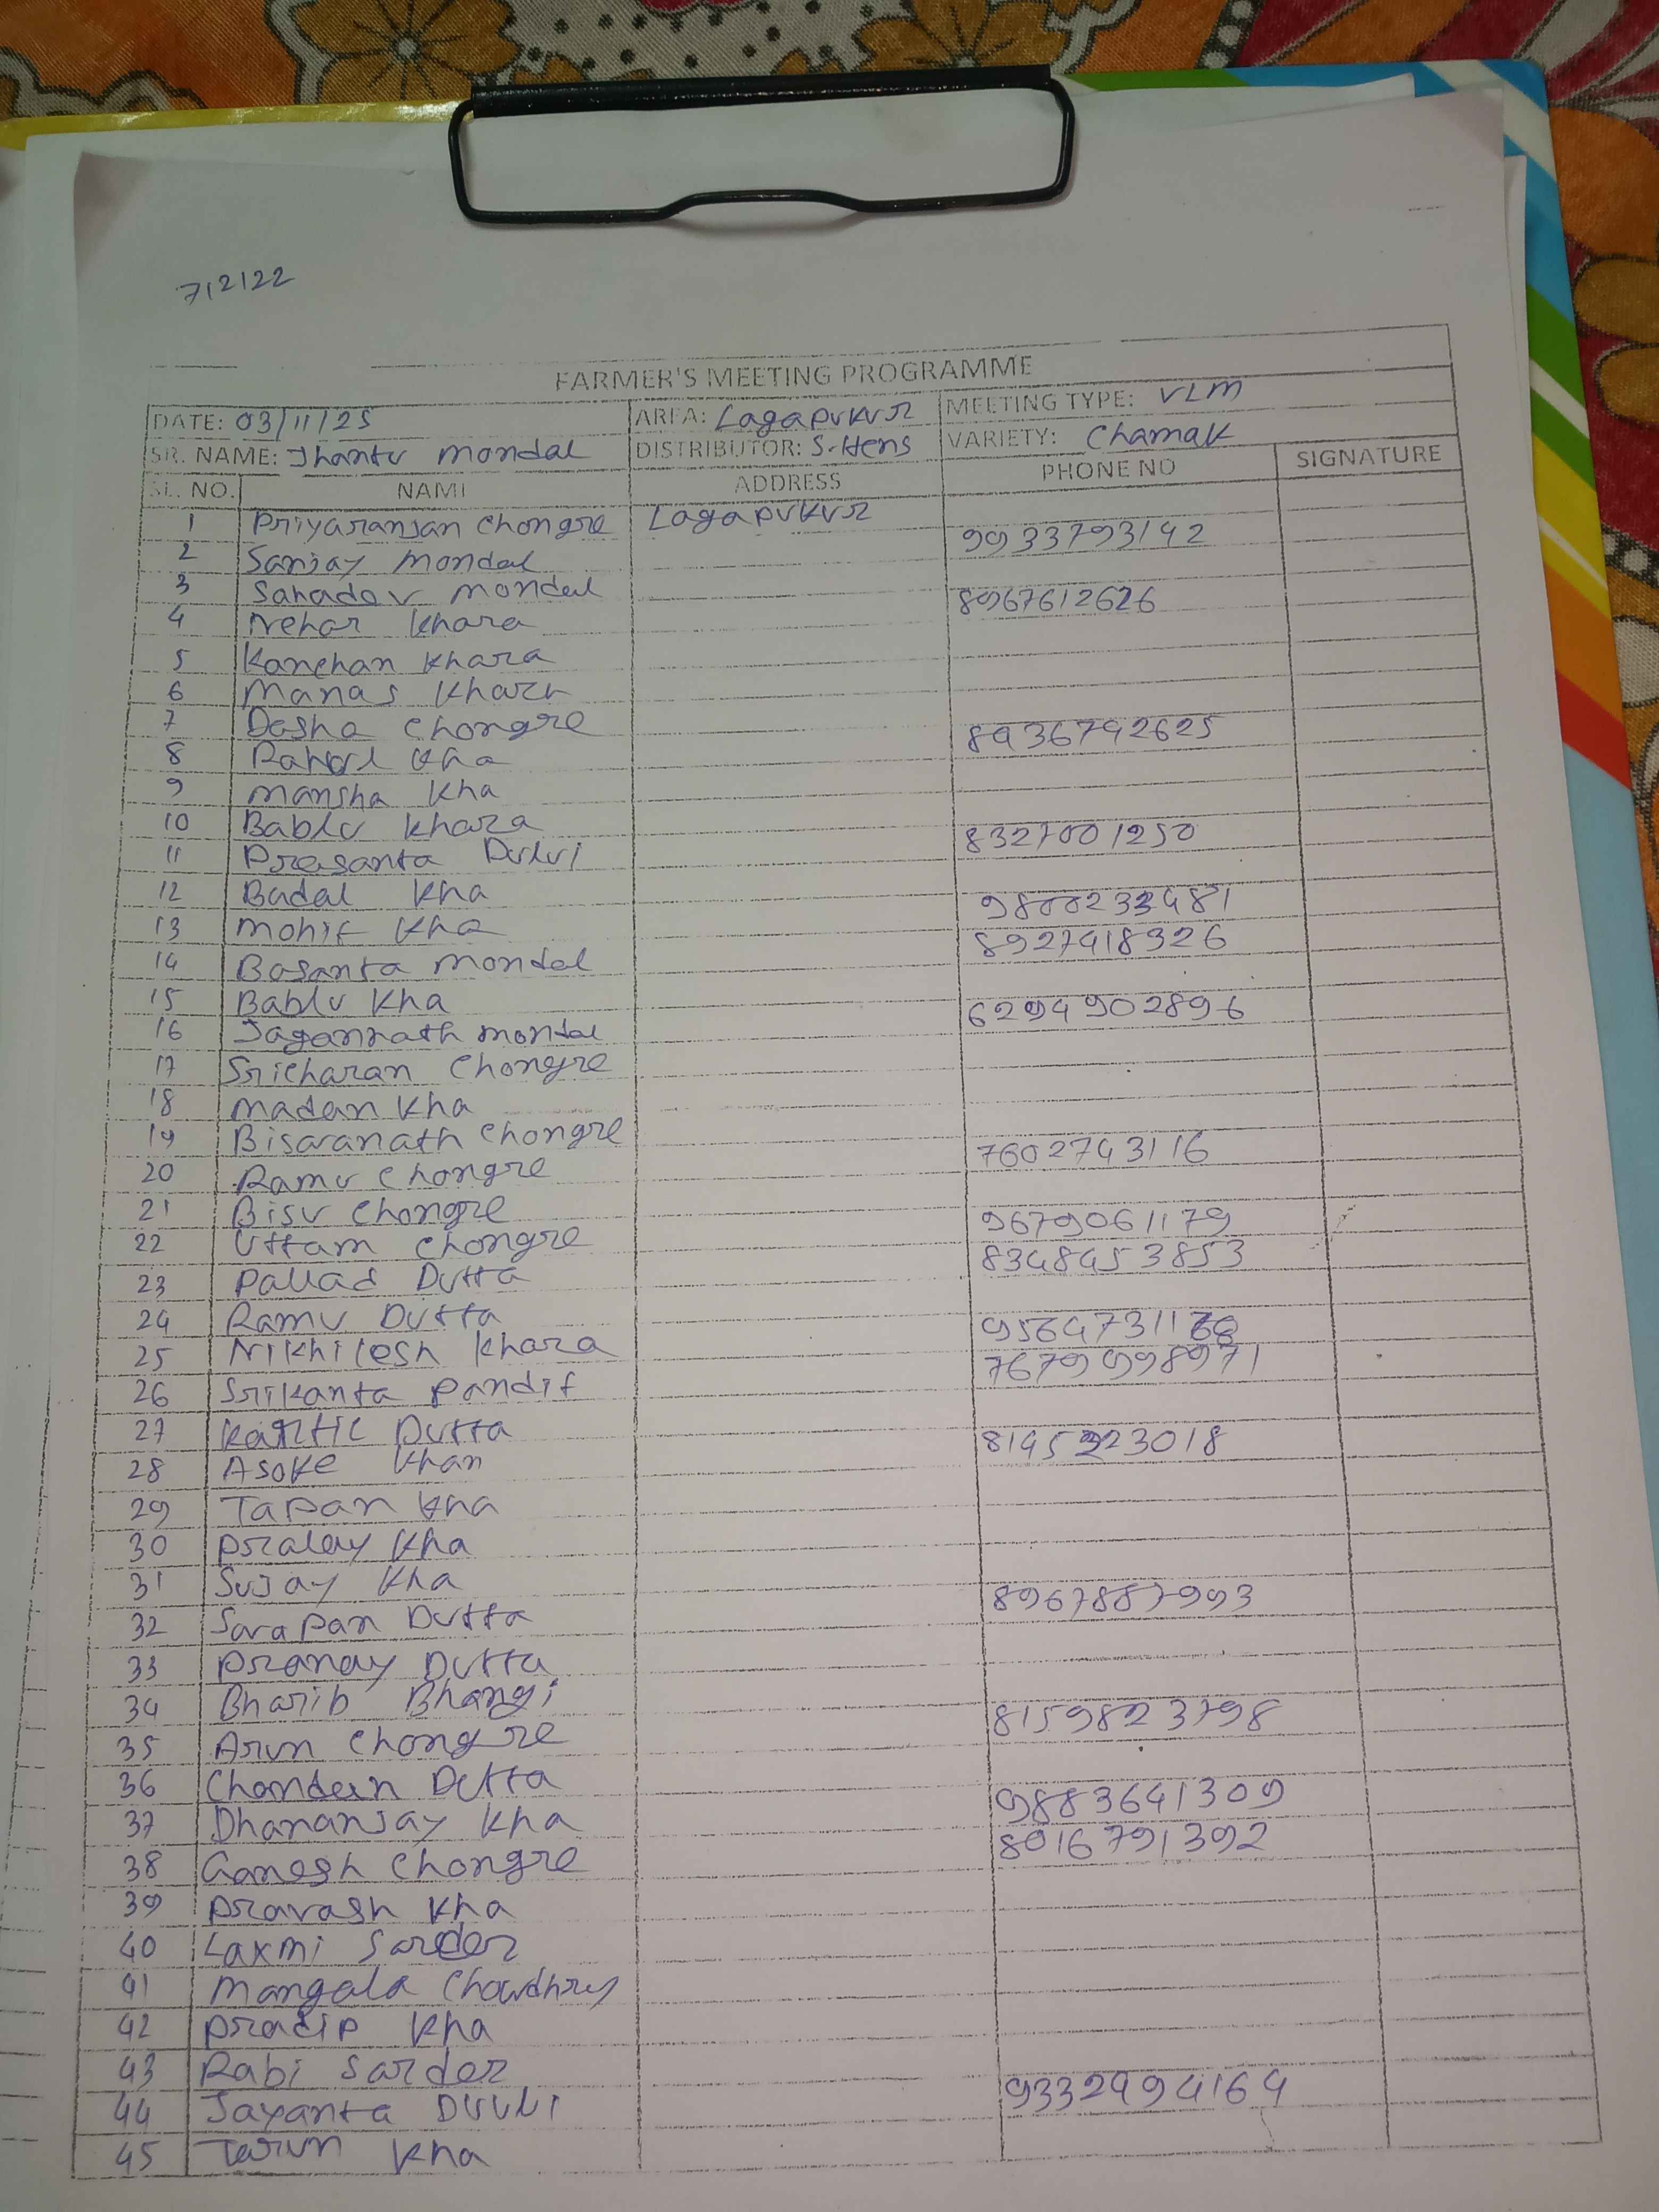 712122
FARMER'S MEETING PROGRAMME
DATE: 03/11/25 AREA: Lagapukur MEETING TYPE: VLM
SR. NAME: Jhantu Mondal DISTRIBUTOR: S. Hens VARIETY: Chamak
SL. NO. NAME ADDRESS PHONE NO SIGNATURE
1 Priyaranjan Chongre Lagapukur
2 Sanjay Mondal 9933793142
3 Sahadev Mondal
4 Nehar Khara 8967612626
5 Kanchan Khara
6 Manas Khara
7 Dasha Chongre
8 Rahul Kha 8436742625
9 Mansha Kha
10 Bablu Khara
11 Prasanta Dului 8327001250
12 Badal Kha
13 Mohit Kha 9800233481
14 Basanta Mondal 8927418326
15 Bablu Kha
16 Jagannath Mondal 6294902896
17 Sricharan Chongre
18 Madan Kha
19 Biswanath Chongre
20 Ramu Chongre 7602743116
21 Bisu Chongre
22 Uttam Chongre 9679061179
23 Pallad Dutta 8348453853
24 Ramu Dutta
25 Nikhilesh Khara
26 Srikanta Pandit 7679998971
27 Kartic Dutta
28 Asoke Khan
29 Tapan Kha
30 Pralay Kha
31 Sujay Kha
32 Sarapan Dutta 8967887993
33 Pranay Dutta
34 Bharib Bhangi
35 Arun Chongre 8159823798
36 Chandan Dutta
37 Dhananjay Kha 9883641309
38 Ganesh Chongre 8016791392
39 Pravash Kha
40 Laxmi Sarder
41 Mangala Chowdhry
42 Pradip Kha
43 Rabi Sarder
44 Jayanta Dului 9332494164
45 Tarun Kha